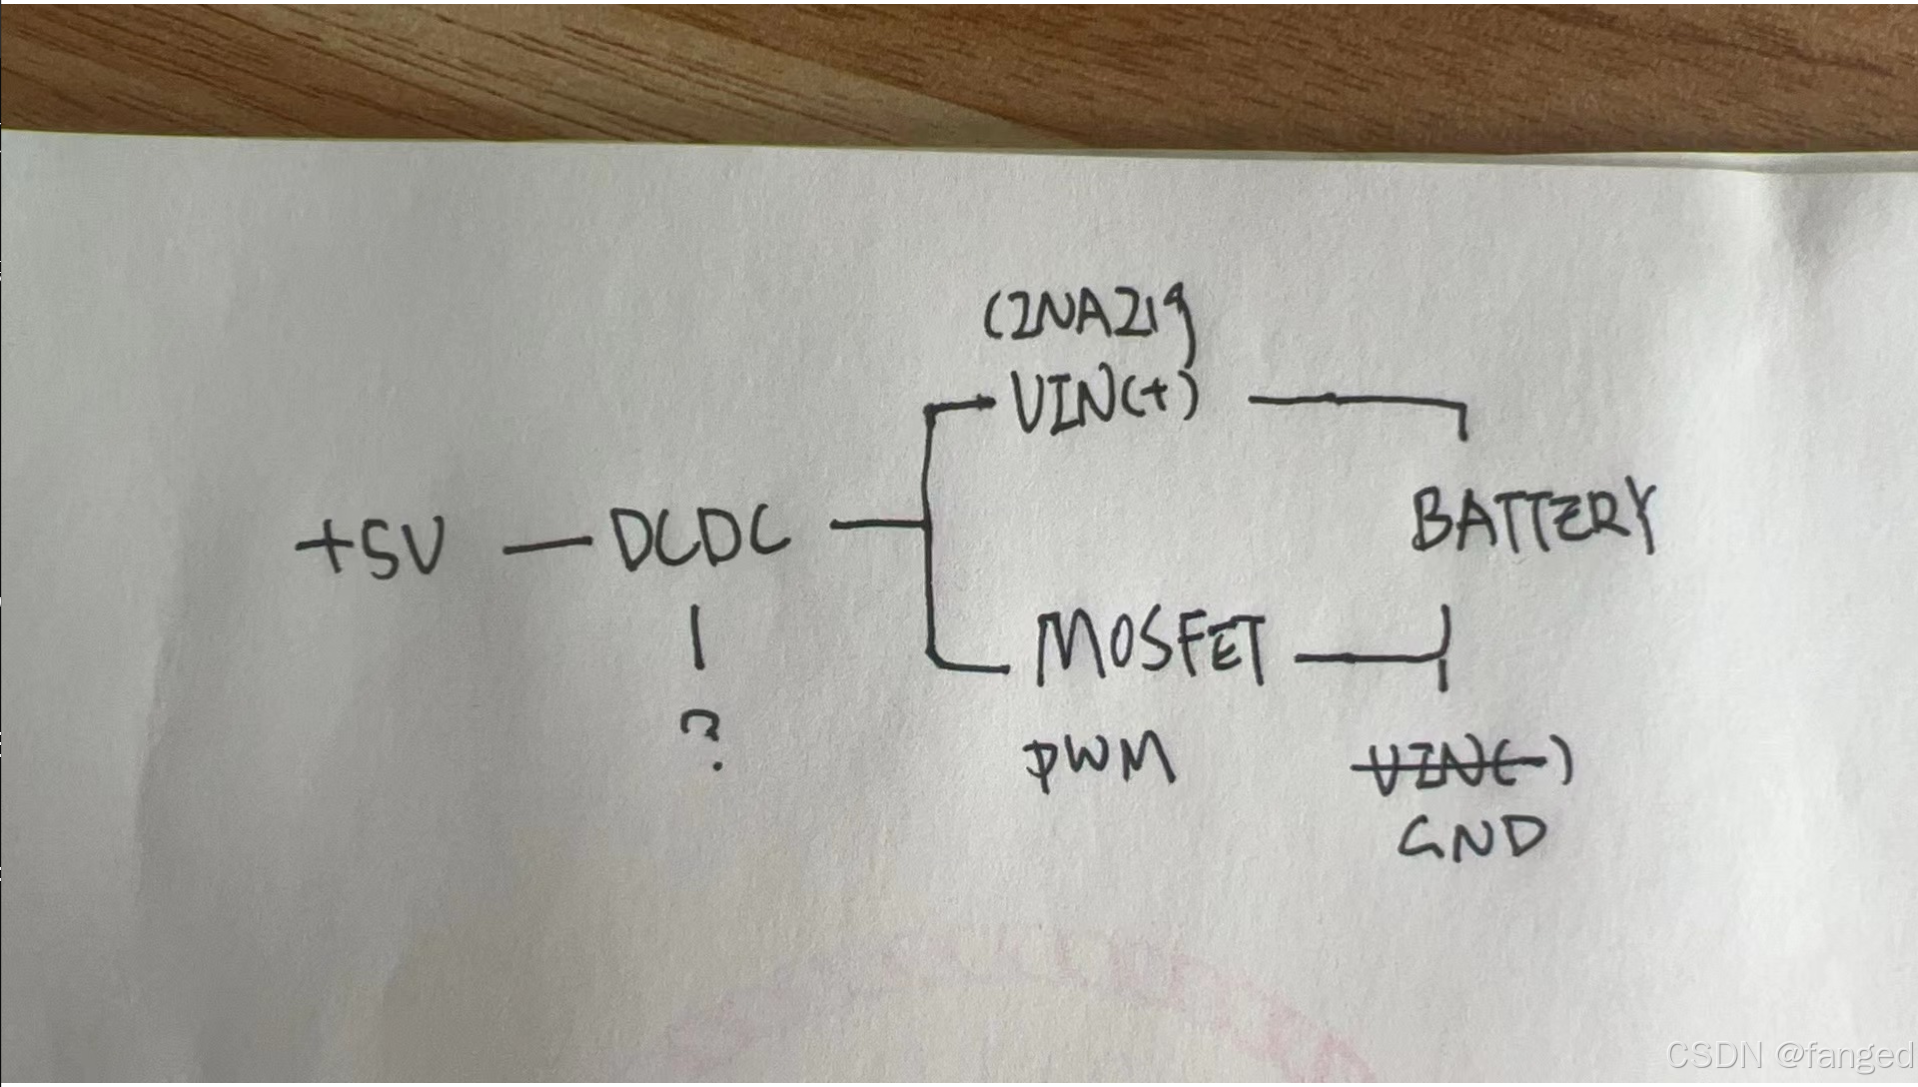 (INA219
VIN(+)
+5V — DCDC
BATTERY
MOSFET
?
PWM
VIN(-)
GND
CSDN @fanged